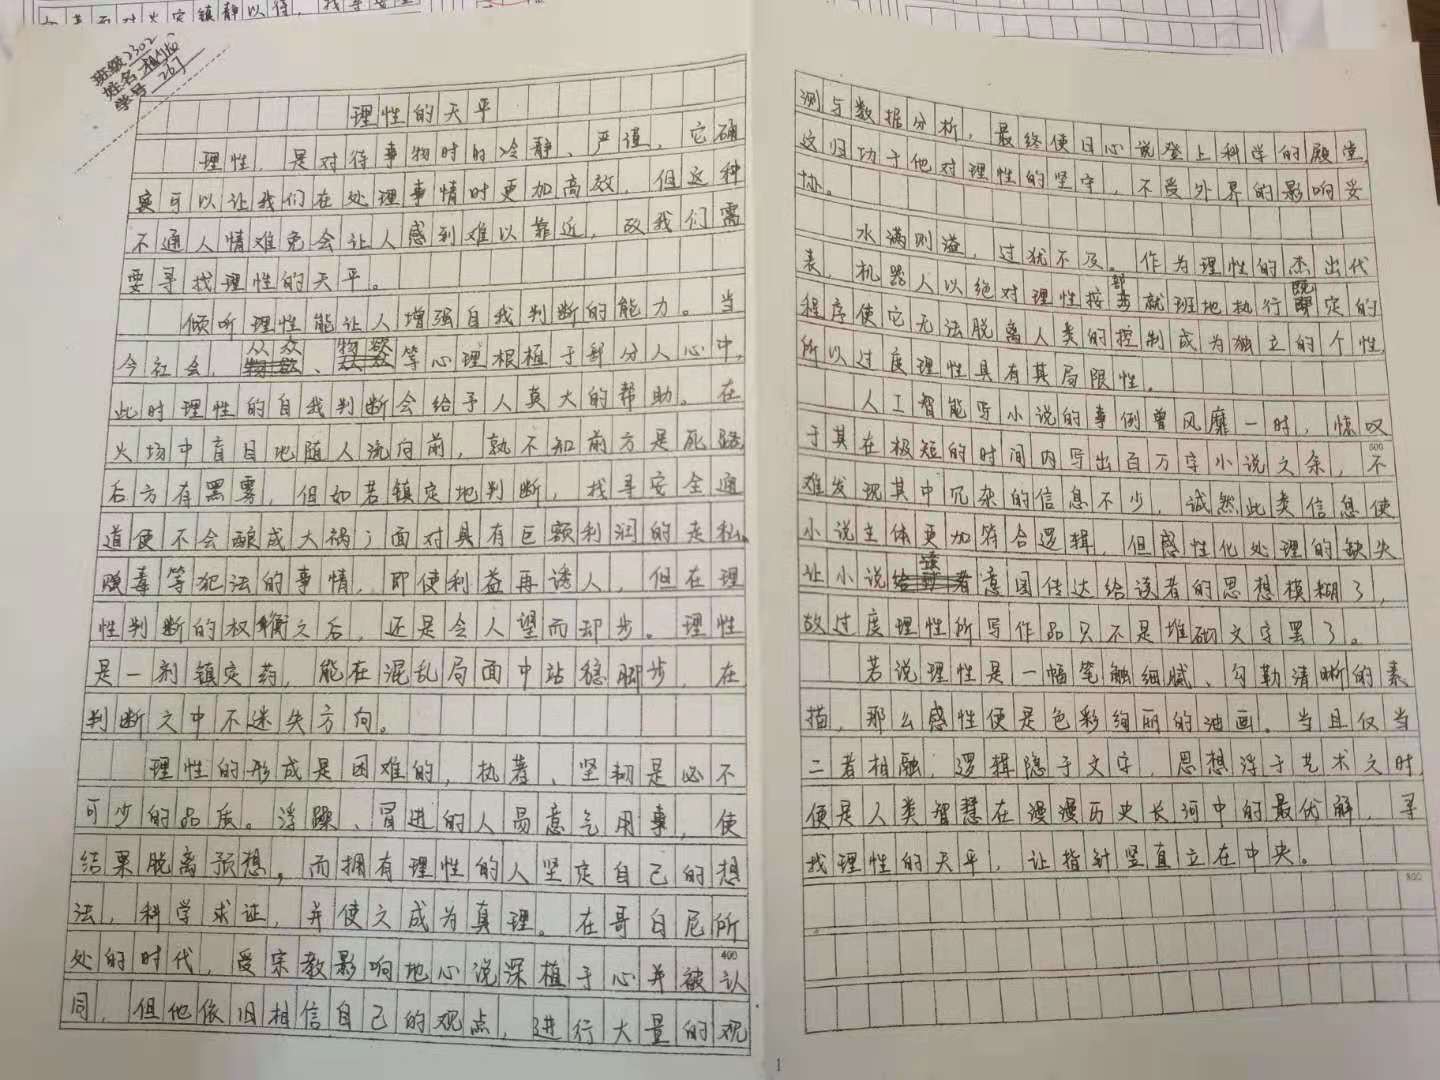 班级 2302
姓名
学号 267
理性的天平
理性，是对待事物时的冷静、严谨，它确
实可以让我们在处理事情时更加高效，但这种
不通人情难免会让人感到难以靠近，故我们需
要寻找理性的天平。
倾听理性能让人增强自我判断的能力。当
今社会，从众、物欲等心理根植于部分人心中，
此时理性的自我判断会给予人莫大的帮助。在
火场中盲目地随人流向前，孰不知前方是死路
后方有黑雾，但如若镇定地判断，找寻安全通
道便不会酿成大祸；面对具有巨额利润的走私
贩毒等犯法的事情，即使利益再诱人，但在理
性判断的权衡之后，还是令人望而却步。理性
是一剂镇定药，能在混乱局面中站稳脚步，在
判断之中不迷失方向。
理性的形成是困难的，执著、坚韧是必不
可少的品质。浮躁、冒进的人易意气用事，使
结果脱离预想，而拥有理性的人坚定自己的想
法，科学求证，并使之成为真理。在哥白尼所
处的时代，受宗教影响地心说深植于心并被认
400
同，但他依旧相信自己的观点，进行大量的观
测与数据分析，最终使日心说登上科学的殿堂，
这归功于他对理性的坚守，不受外界的影响妥
协。
水满则溢，过犹不及。作为理性的杰出代
表，机器人以绝对理性按部就班地执行既定的
程序使它无法脱离人类的控制成为独立的个性，
所以过度理性具有其局限性。
人工智能写小说的事例曾风靡一时，惊叹
于其在极短的时间内写出百万字小说之余，不
600
难发现其中冗杂的信息不少，诚然此类信息使
小说主体更加符合逻辑，但感性化处理的缺失
让小说意图传达给读者的思想模糊了，
故过度理性所写作品只不是堆砌文字罢了。
若说理性是一幅笔触细腻、勾勒清晰的素
描，那么感性便是色彩绚丽的油画。当且仅当
二者相融，逻辑隐于文字，思想浮于艺术之时，
便是人类智慧在漫漫历史长河中的最优解，寻
找理性的天平，让指针竖直立在中央。
800
1